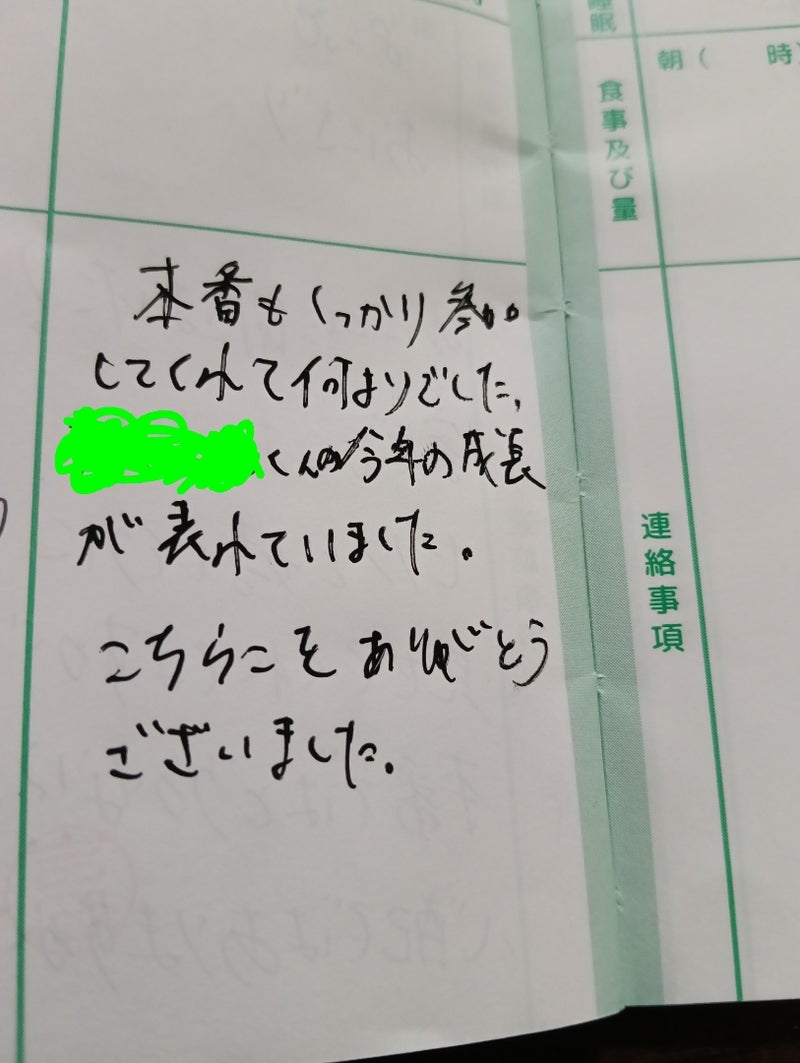 本番もしっかり参加
してくれて何よりでした。
くんの今年の成長
が表れていました。
こちらこそありがとう
ございました。
睡眠
朝(　時)
食事及び量
連絡事項